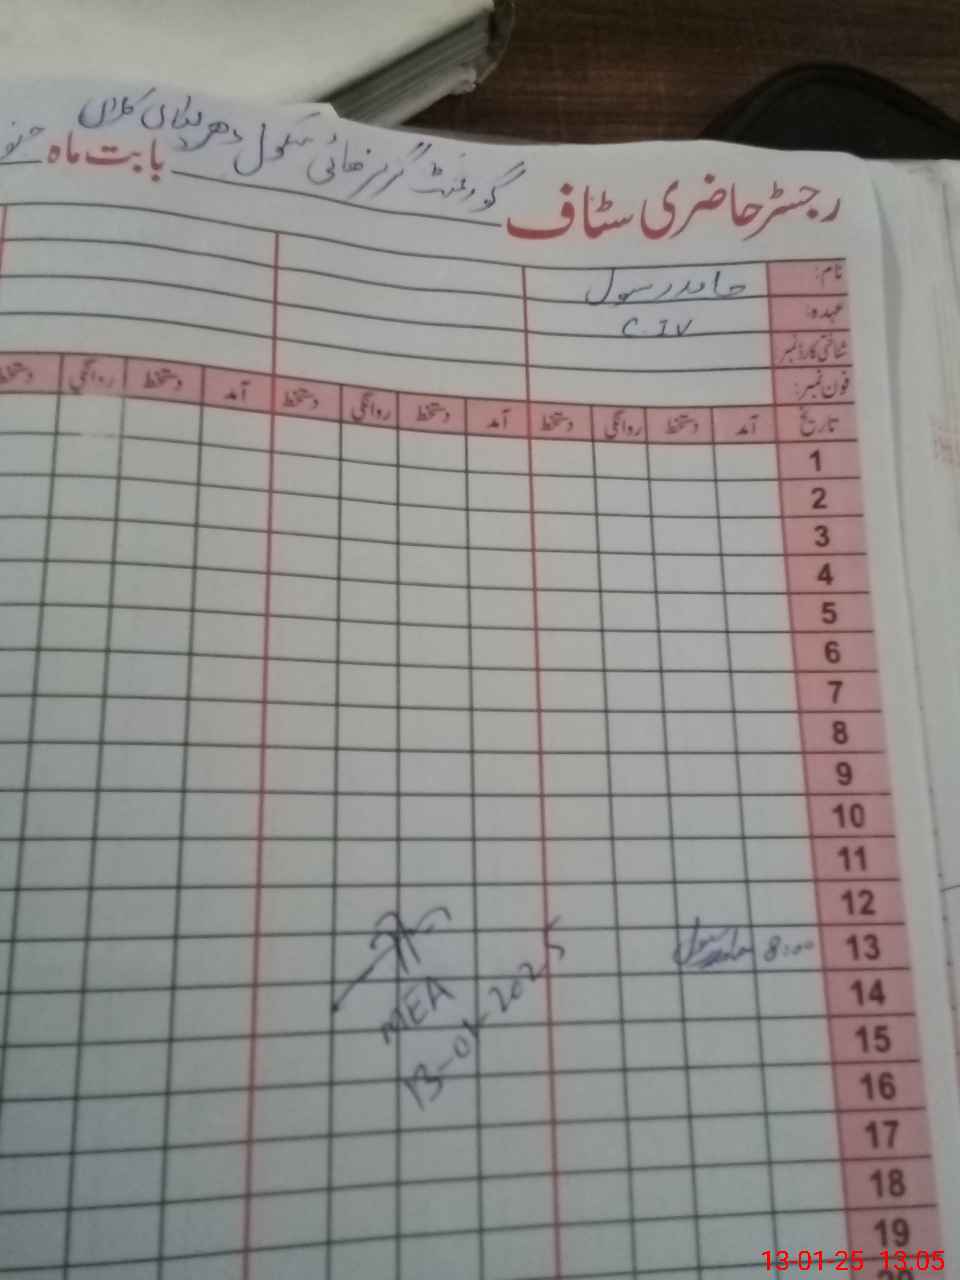 رجسٹر حاضری سٹاف گورنمنٹ گرلز ھائی سکول کلاں بابت ماہ
نام: حامد رسول
عہدہ: C.IV
شناختی کارڈ نمبر
فون نمبر:
تاریخ آمد دستخط روانگی دستخط آمد دستخط روانگی دستخط آمد دستخط روانگی دستخط
1
2
3
4
5
6
7
8
9
10
11
12
13 8:00 حامد رسول
MEA
13-01-2025
14
15
16
17
18
19
13-01-25 13:05